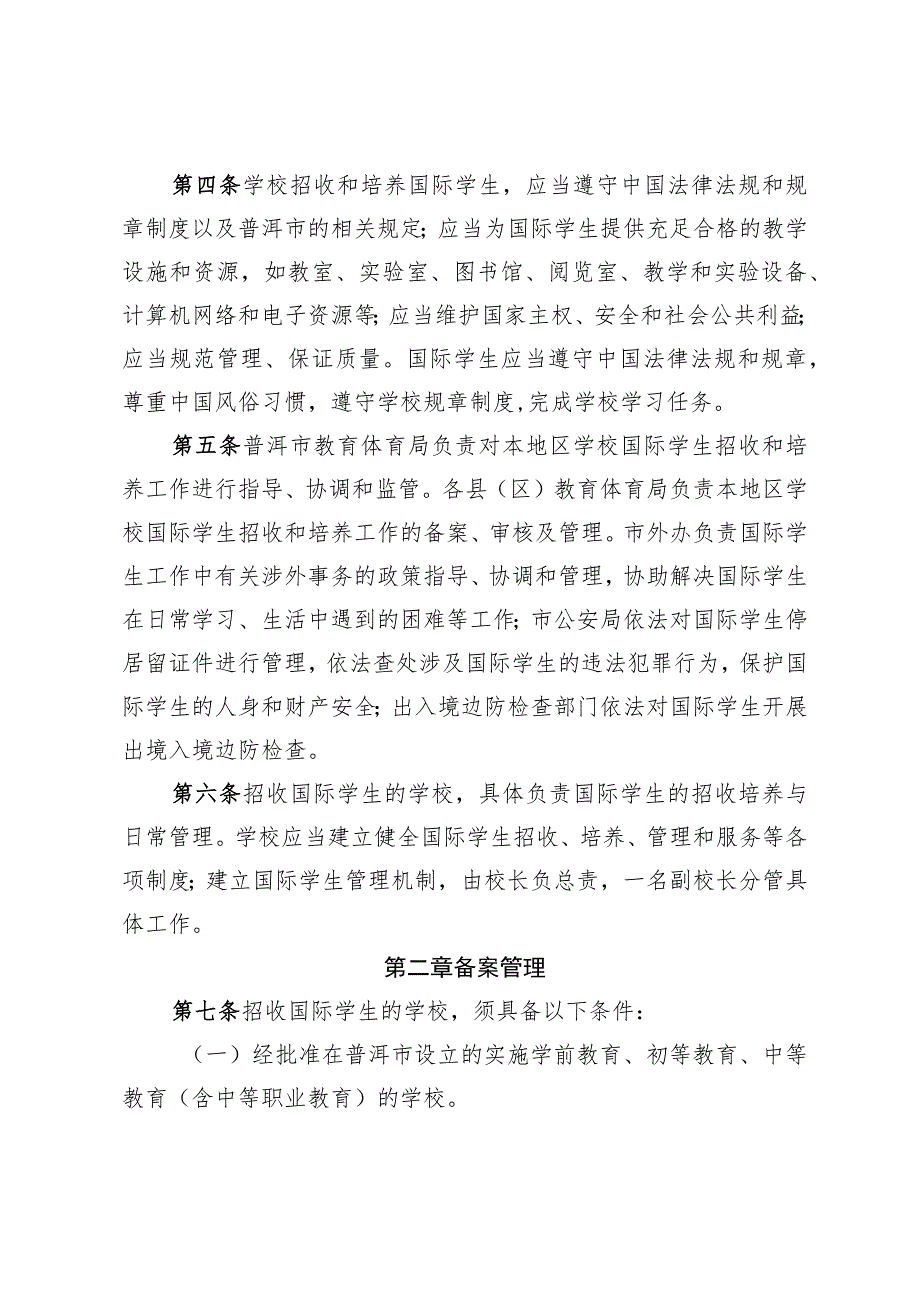 第四条学校招收和培养国际学生，应当遵守中国法律法规和规
章制度以及普洱市的相关规定；应当为国际学生提供充足合格的教学
设施和资源，如教室、实验室、图书馆、阅览室、教学和实验设备、
计算机网络和电子资源等；应当维护国家主权、安全和社会公共利益；
应当规范管理、保证质量。国际学生应当遵守中国法律法规和规章，
尊重中国风俗习惯，遵守学校规章制度,完成学校学习任务。
第五条普洱市教育体育局负责对本地区学校国际学生招收和培
养工作进行指导、协调和监管。各县（区）教育体育局负责本地区学
校国际学生招收和培养工作的备案、审核及管理。市外办负责国际学
生工作中有关涉外事务的政策指导、协调和管理，协助解决国际学生
在日常学习、生活中遇到的困难等工作；市公安局依法对国际学生停
居留证件进行管理，依法查处涉及国际学生的违法犯罪行为，保护国
际学生的人身和财产安全；出入境边防检查部门依法对国际学生开展
出境入境边防检查。
第六条招收国际学生的学校，具体负责国际学生的招收培养与
日常管理。学校应当建立健全国际学生招收、培养、管理和服务等各
项制度；建立国际学生管理机制，由校长负总责，一名副校长分管具
体工作。
第二章备案管理
第七条招收国际学生的学校，须具备以下条件：
（一）经批准在普洱市设立的实施学前教育、初等教育、中等
教育（含中等职业教育）的学校。